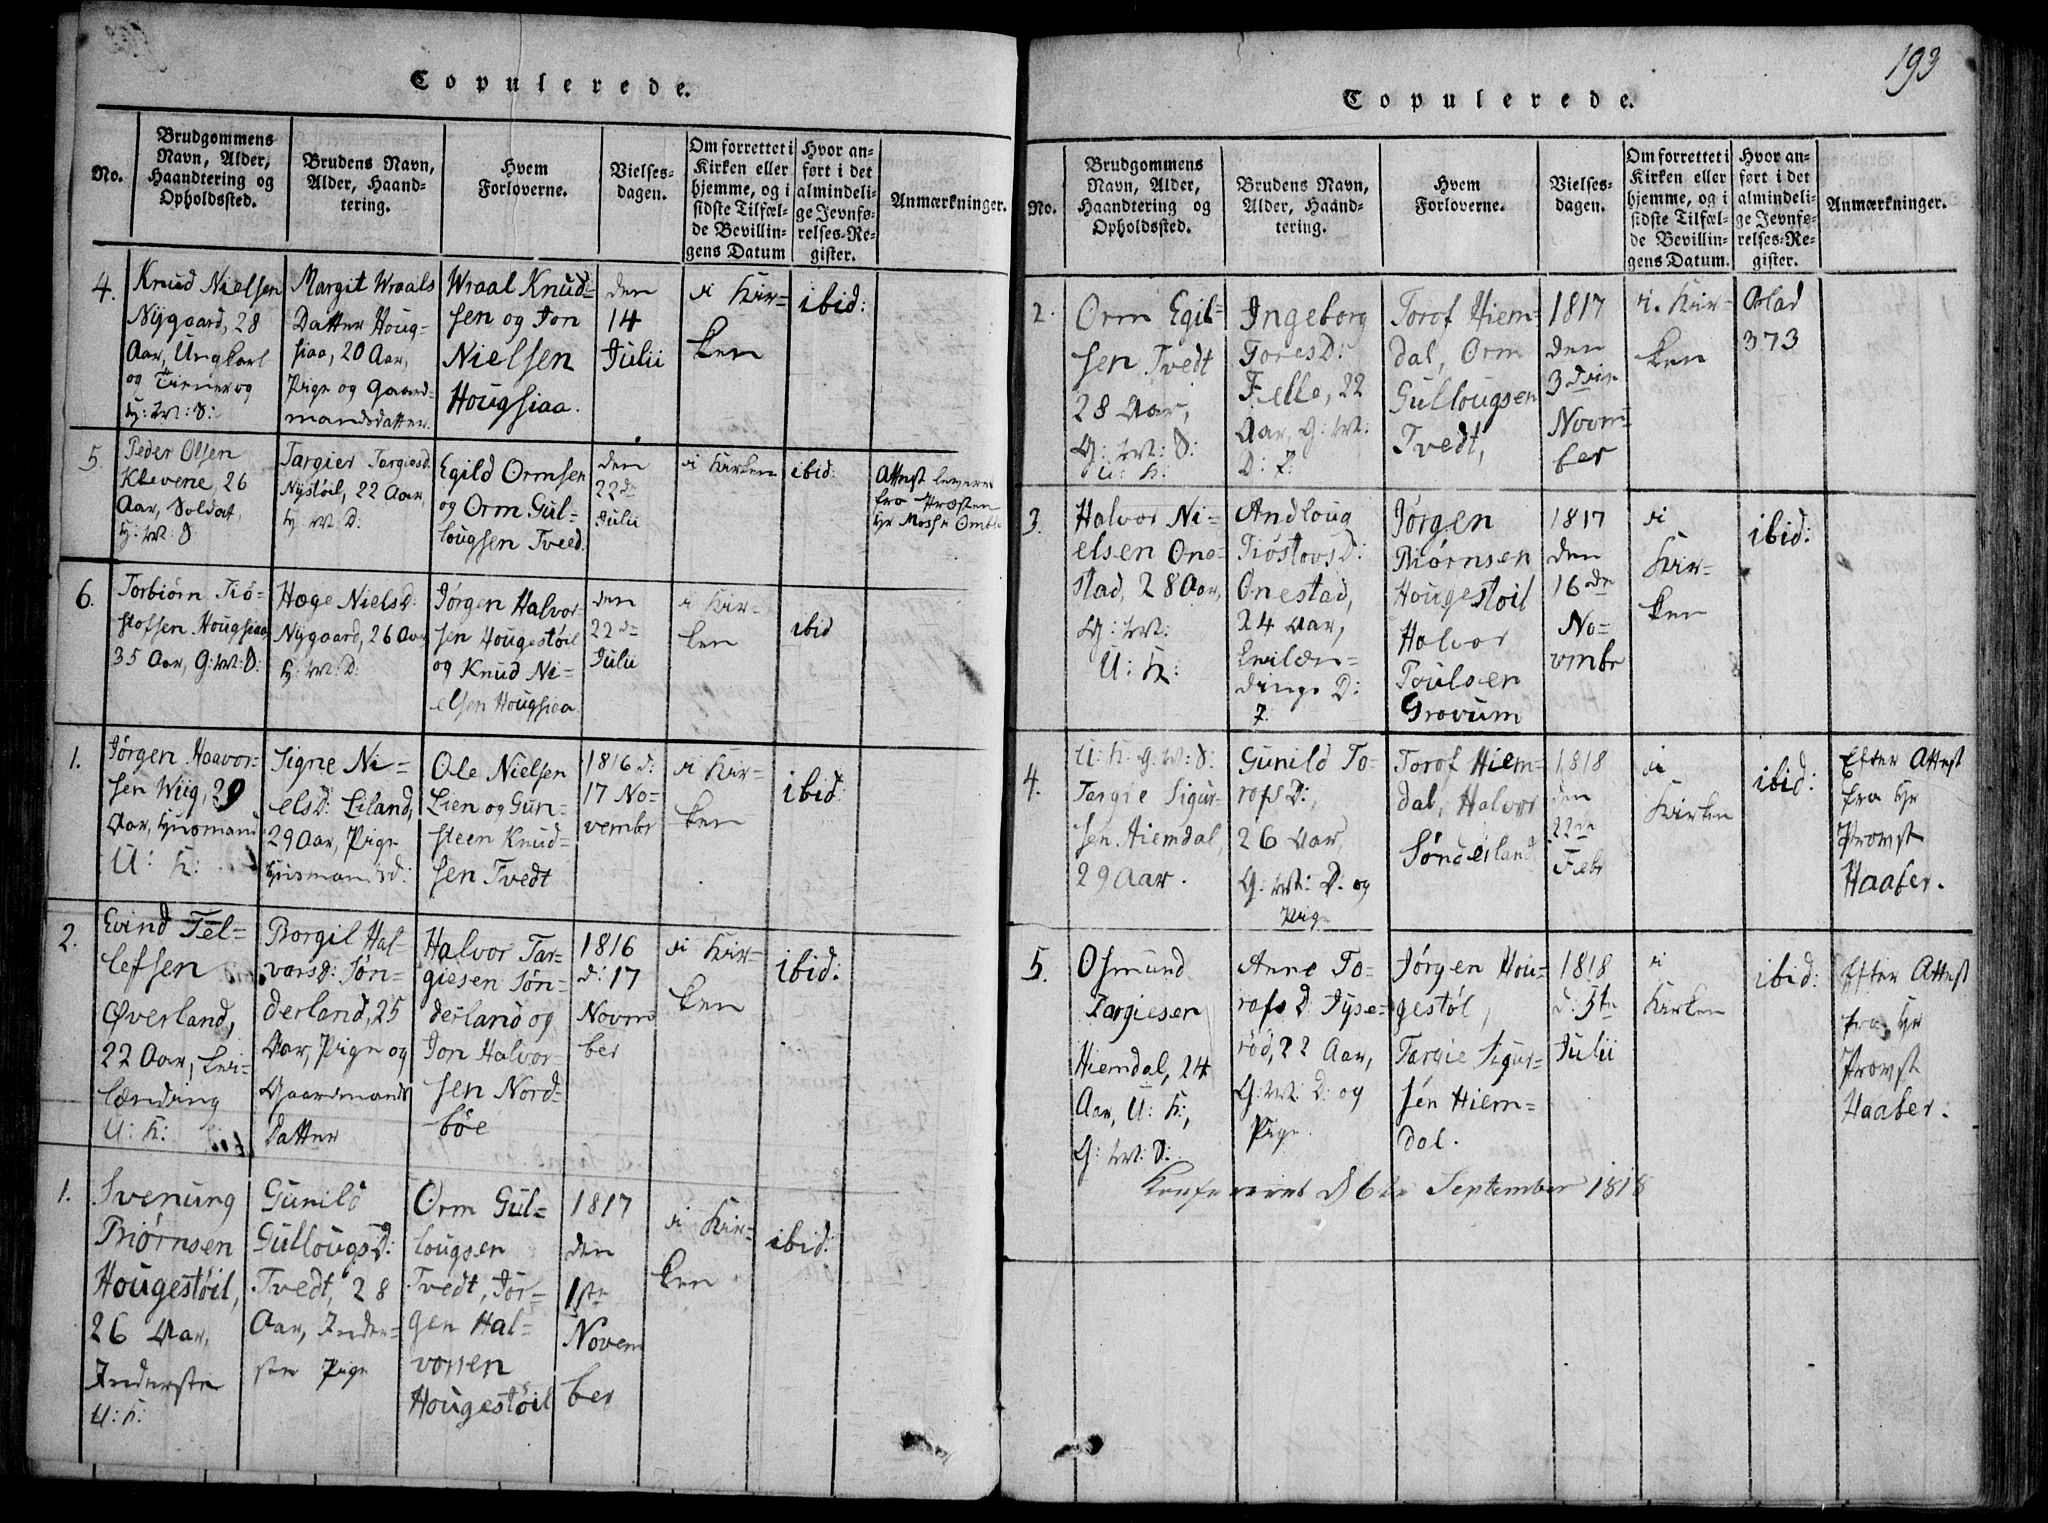 Copulerede.
No.
Brudgommens
Navn, Alder,
Haandtering og
Opholdssted.
Brudens Navn,
Alder, Haand-
tering.
Hvem
Forloverne.
Vielses-
dagen.
Om forrettet i
Kirken eller
hjemme, og i
sidste Tilfæl-
de Bevillin-
gens Datum
Hvor an-
ført i det
almindeli-
ge Jevnfø-
relses-Re-
gister.
Anmærkninger.
4.
Knud Nielsen
Nygaard, 28
Aar, Ungkarl
og Tiener og
G: M: S:
Margit Wraals
Datter Houg-
siaa, 20 Aar,
Pige og Gaard-
mandsdatter.
Wraal Knud-
sen og Jon
Nielsen
Hougsiaa.
den
14
Julii
i Kir-
ken
ibid:
5.
Peder Olsen
Klevene, 26
Aar, Soldat,
G: M: S
Targier Targiesd.
Nystøil, 22 Aar,
G. M: D:
Egild Ormsen
og Orm Gul-
lougsen Tveed.
den
22de
Julii
i Kirken
ibid:
Attest
fra Præsten
Hr
6.
Torbiørn Tiø-
stofsen Hougsiaa
35 Aar, G: M: S:
Hæge Nielsd:
Nygaard, 26 Aar,
G: M: D:
Jørgen Halvor-
sen Hougestøil
og Knud Ni-
elsen Hougsiaa.
den
22de
Julii
i Kir-
ken
ibid
1.
Jørgen Haavor-
sen Wiig, 29
Aar, Husmand
U: K:
Signe Ni-
elsd: Eiland,
29 Aar, Pige
Husmandsd:
Ole Nielsen
Lien og Gun-
steen Knud-
sen Tvedt
1816 d:
17 No-
vembr
i Kir-
ken
ibid:
2.
Evind Tel-
lefsen
Øverland,
22 Aar, Qvi-
lænding
U: K:
Borgil Hal-
varsd: Søn-
derland, 25
Aar, Pige og
Gaardmands
Datter
Halvor Tar-
giesen Søn-
derland og
Jon Halvor-
sen Nord-
bøe
1816
d: 17
Novm
ber
i Kir-
ken
ibid:
1.
Svenung
Biørnsen
Hougestøil,
26 Aar,
Inderste
U: K:
Gunild
GullougsD:
Tvedt, 28
Aar, Inder-
ste Pige
Orm Gul-
lougsen
Tvedt, Jør-
gen Hal-
vorsen
Hougestøil
1817
den
1ste
Novem
ber
i Kir-
ken
ibid:
193
Copulerede.
No.
Brudgommens
Navn, Alder,
Haandtering og
Opholdssted.
Brudens Navn,
Alder, Haand-
tering.
Hvem
Forloverne.
Vielses-
dagen.
Om forrettet i
Kirken eller
hjemme, og i
sidste Tilfæl-
de Bevillin-
gens Datum.
Hvor an-
ført i det
almindeli-
ge Jevnfø-
relses-Re-
gister.
Anmærkninger.
2.
Orm Egil-
sen Tvedt
28 Aar,
G: M: S:
U: K:
Ingeborg
ToresD:
Felle, 22
Aar, G: M:
D: P:
Torof Hiem-
dal, Orm
Gullougsen
Tvedt,
1817
den
3die
Novm-
ber
i Kir-
ken
Blad
373
3.
Halvor Ni-
elsen One-
stad, 28 Aar,
G: M:
U: K:
Andloug
TiøstovsD:
Onestad,
24 Aar,
Qvilæn-
dings D:
P.
Jørgen
Biørnsen
Hougestøil
Halvor
Poulsen
Grovum
1817
den
16de
No-
vmbr
i
Kir-
ken
ibid:
4.
U: K. G: M: S:
Targie Sigur-
sen Hiemdal,
29 Aar.
Gunild To-
rofsD:,
26 Aar,
G: M: D. og
Pige
Torof Hiem-
dal, Halvor
Sønderland
1818
den
22de
Febr
i
Kirken
ibid:
Efter Attest
fra Hr
Provst
Haaber.
5.
Osmund
Targiesen
Hiemdal, 24
Aar, U: K:,
G: M: S:
Anne To-
rofsD: Tyse-
rød, 22 Aar,
G: M: D: og
Pige
Jørgen Hou-
gestøl,
Targie Sigur-
sen Hiem-
dal.
1818
d: 5te
Julii
i
Kirken
ibid:
Efter Attest
fra Hr
Provst
Haaber.
Confereret d 6te September 1818